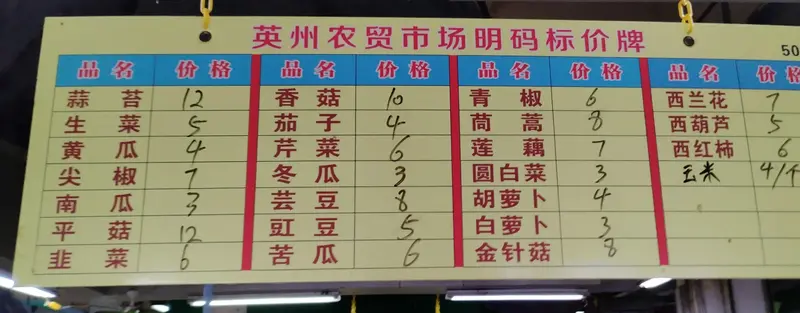 英州农贸市场明码标价牌
50
品名 价格 品名 价格 品名 价格 品名 价格
蒜苔 12 香菇 10 青椒 6 西兰花 7
生菜 5 茄子 4 茼蒿 8 西葫芦 5
黄瓜 4 芹菜 6 莲藕 7 西红柿 6
尖椒 7 冬瓜 3 圆白菜 3 玉米 4/个
南瓜 3 芸豆 8 胡萝卜 4
平菇 12 豇豆 5 白萝卜 3
韭菜 6 苦瓜 6 金针菇 8